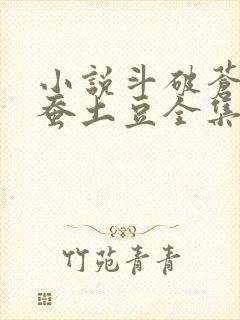 小說斗破蒼
蚕土豆全集
竹苑青青